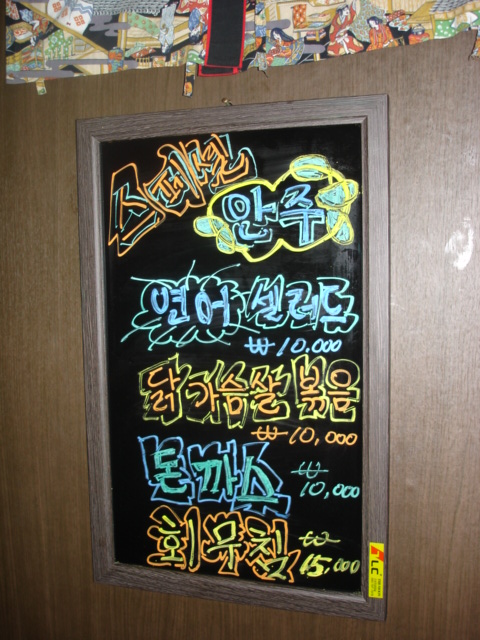 스페셜
안주
연어 셀러드
₩10,000
닭가슴살 볶음
₩10,000
돈까스 ₩10,000
회무침 ₩15,000
LC